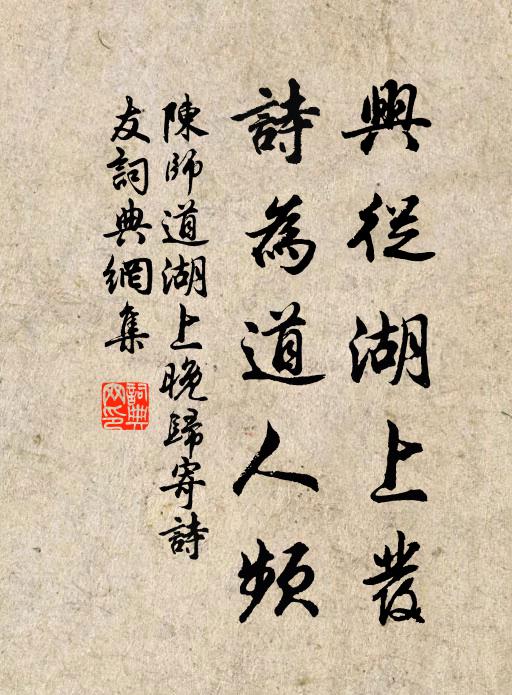 興從湖上發
詩為道人頻
陳師道湖上晚歸寄詩
友詞典網集
詞典網印